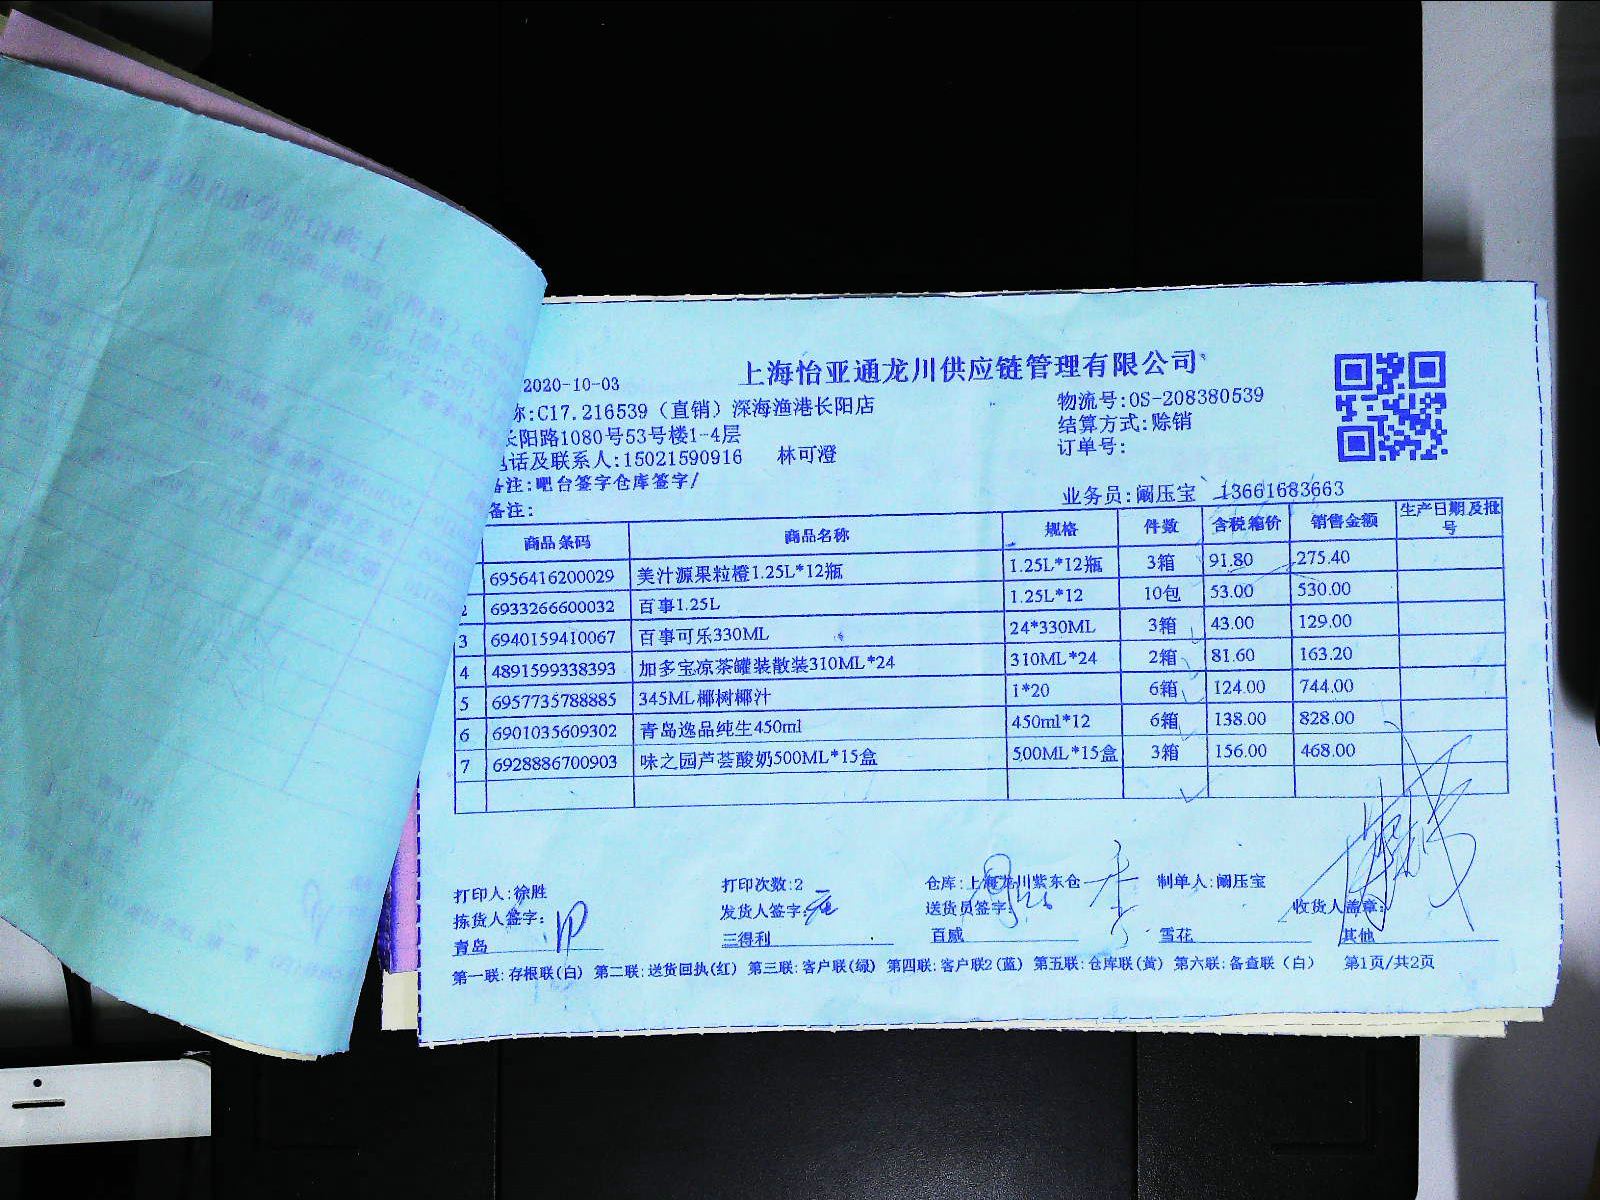 上海怡亚通龙川供应链管理有限公司
2020-10-03
称:C17.216539（直销）深海渔港长阳店
物流号:OS-208380539
长阳路1080号53号楼1-4层
结算方式:赊销
电话及联系人:15021590916 林可澄
订单号:
备注:吧台签字仓库签字/
备注:
业务员:阚压宝 13661683663
商品条码 商品名称 规格 件数 含税箱价 销售金额 生产日期及批号
6956416200029 美汁源果粒橙1.25L*12瓶 1.25L*12瓶 3箱 91.80 275.40
2 6933266600032 百事1.25L 1.25L*12 10包 53.00 530.00
3 6940159410067 百事可乐330ML 24*330ML 3箱 43.00 129.00
4 4891599338393 加多宝凉茶罐装散装310ML*24 310ML*24 2箱 81.60 163.20
5 6957735788885 345ML椰树椰汁 1*20 6箱 124.00 744.00
6 6901035609302 青岛逸品纯生450ml 450ml*12 6箱 138.00 828.00
7 6928886700903 味之园芦荟酸奶500ML*15盒 500ML*15盒 3箱 156.00 468.00
打印人:徐胜 打印次数:2 仓库:上海龙川紫东仓 制单人:阚压宝
拣货人签字: 发货人签字: 送货员签字: 收货人盖章:
青岛 三得利 百威 雪花 其他
第一联:存根联(白) 第二联:送货回执(红) 第三联:客户联(绿) 第四联:客户联2(蓝) 第五联:仓库联(黄) 第六联:备查联（白） 第1页/共2页